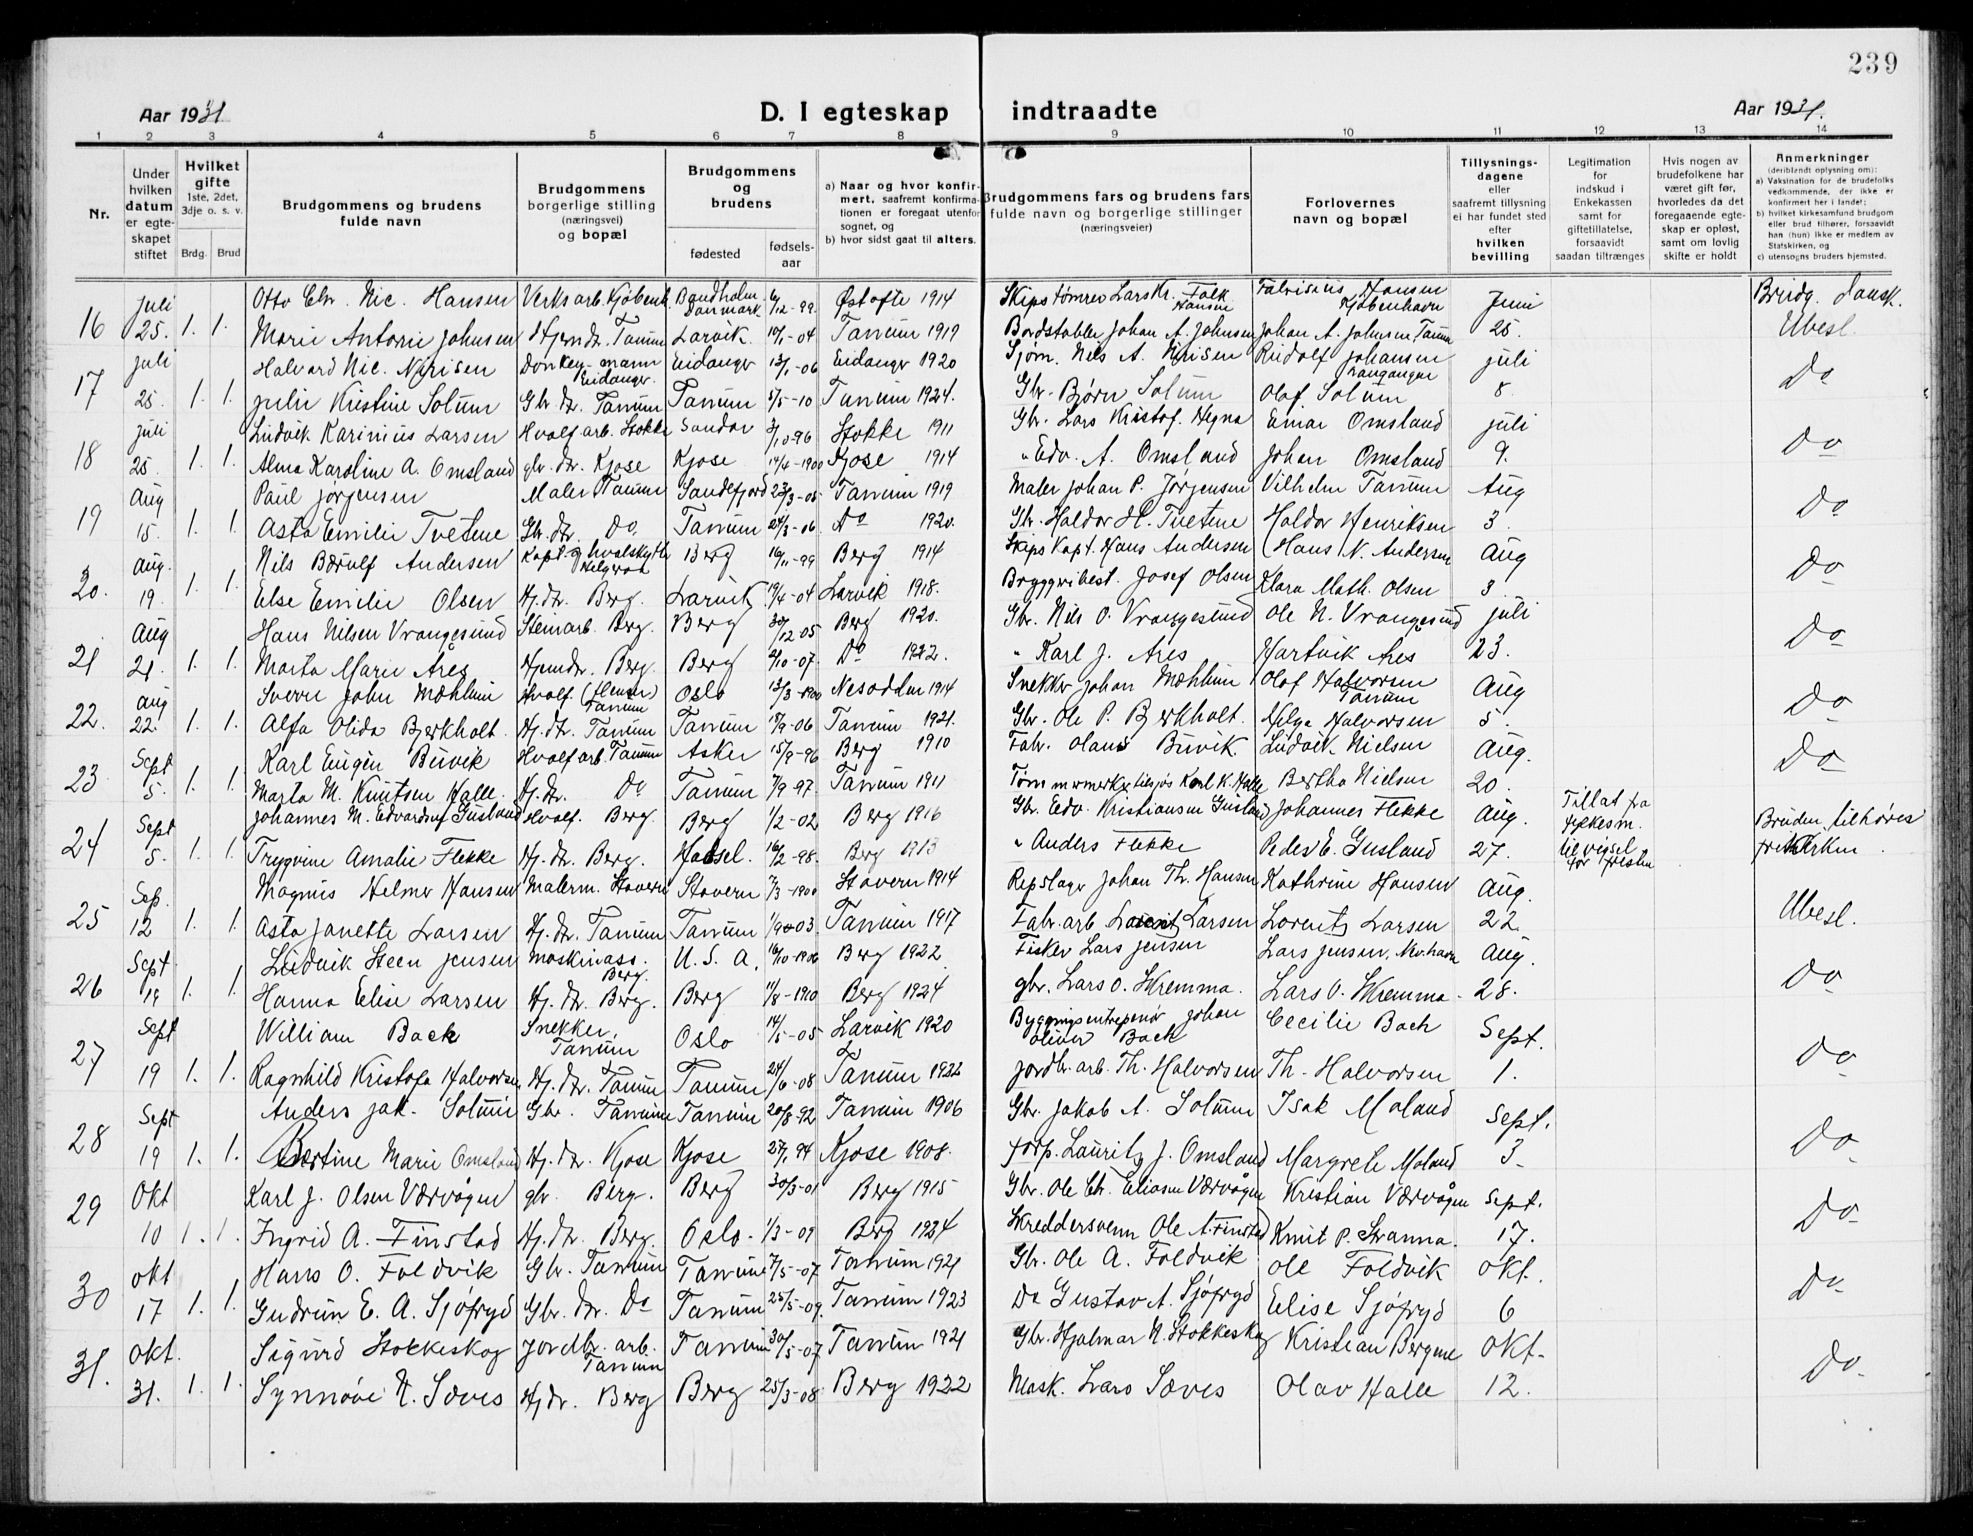 239
Aar 1931
D. I egteskap
indtraadte
Aar 1931.
1 2 3 4 5 6 7 8 9 10 11 12 13 14
Nr.
Under hvilken datum er egteskapet stiftet
Hvilket gifte
1ste, 2det, 3dje o. s. v.
Brdg. Brud
Brudgommens og brudens fulde navn
Brudgommens borgerlige stilling (næringsvei) og bopæl
Brudgommens og brudens
fødested
fødselsaar
a) Naar og hvor konfirmert, saafremt konfirmationen er foregaat utenfor sognet, og
b) hvor sidst gaat til alters.
Brudgommens fars og brudens fars fulde navn og borgerlige stillinger (næringsveier)
Forlovernes navn og bopæl
Tillysningsdagene eller saafremt tillysning ei har fundet sted efter hvilken bevilling
Legitimation for indskud i Enkekassen samt for giftetillatelse, forsaavidt saadan tiltrænges
Hvis nogen av brudefolkene har været gift før, hvorledes da det foregaaende egteskap er opløst, samt om lovlig skifte er holdt
Anmerkninger
(deriblandt oplysning om):
a) Vaksination for de brudefolks vedkommende, der ikke er konfirmert her i landet;
b) hvilket kirkesamfund brudgom eller brud tilhører, forsaavidt han (hun) ikke er medlem av Statskirken, og
c) utensogns bruders hjemsted.
16 Juli 25. 1. 1. Otto Chr. Nic. Hansen Verksarb. Kjøbenh. Bandholm Danmark 6/12-99. Østofte 1914 Skipstømrer Lars Kr. Falk Hansen Fabrisius Hansen Kjøbenhavn Juni Brudg. Dansk.
Marie Antonie Johnsen Hjemdr. Tanum Larvik 10/1-04 Tanum 1919 Bordstabler Johan A. Johnsen Johan A. Johnsen, Tanum 25. Ubesl.
17 Juli 25. 1. 1. Halvard Nic. Nirisen Donkeymann Eidanger Eidanger 13/1-06 Eidanger 1920 Sjøm. Nils A. Nirisen Rudolf Johansen Langangen Juli Do
Julie Kristine Solum Gbr. dr. Tanum Tanum 5/5-10 Tanum 1924. Gbr. Bjørn Solum Olaf Solum 8.
18 Juli 25 1. 1. Ludvik Karinius Larsen Hvalfarb. Stokke Sandar 3/10-96 Stokke 1911 Gbr. Lars Kristof. Hegna Einar Omsland Juli Do
Alma Karoline A. Omsland gbr. dr. Kjose Kjose 14/4-1900 Kjose 1914 " Edv. A. Omsland Johan Omsland 9.
19 Aug 15. 1. 1. Paul Jørgensen Maler Tanum Sandefjord 23/3-05 Tanum 1919 Maler Johan P. Jørgensen Vilhelm Tanum Aug Do
Asta Emilie Tvetene Gbr. dr. Do. Tanum 24/3-06 Do 1920. Gbr. Haldor H. Tvetene Haldor Henriksen 3.
20. Aug. 19. 1. 1. Nils Bærulf Andersen Kapt. og hvalskytter Helgeroa Berg 16/11-99 Berg 1914 Skipskapt. Hans Andersen Hans N. Andersen Aug Do
Else Emilie Olsen Hj. dr. Berg. Larvik 19/4-04 Larvik 1918. Bryggeribest. Josef Olsen Klara Math. Olsen 3.
21 Aug 21. 1. 1. Hans Nilsen Vrangesund Stenarb. Berg. Berg 30/12-05 Berg 1920. Gbr. Nils O. Vrangesund Ole N. Vrangesund Juli Do
Marta Marie Åres Hjemdr. Berg. Berg 2/10-07. Do 1922. " Karl J. Ares Hartvik Ares 23.
22. Aug 22. 1. 1. Sverre John Mæhlum Hvalf. Tanum Oslo 13/3-1900 Nesodden 1914 Snekker Johan Mæhlum Olaf Halvorsen Tanum Aug Do
Alfa Olida Bjerkholt. Hj. dr. Tanum Tanum 17/9-06 Tanum 1921. Gbr. Ole P. Bjerkholt. Helga Halvorsen 5.
23 Sept 5. 1. 1. Karl Eugen Buvik Hvalfarb. Tanum Asker 15/9-96 Berg 1910 Fabr. Olaus Buvik. Ludvik Nielsen Aug. Do
Marta M. Knutsen Halle. Hj. dr. Do Tanum 7/9-97. Tanum 1911 Karl K. Halle Bertha Nielsen 20.
24 Sept 5. 1. 1. Johannes M. Edvardsen Gusland Hvalf. Berg. Berg 1/2-02 Berg 1916 Gbr. Edv. Kristiansen Gusland Johannes Flekke Aug. Tillat fra fylkesm. til vigsel før fristen Bruden tilhører frikirken.
Trygvine Amalie Flekke Hj. dr. Berg. Hadsel. 16/2-98. Berg 1913 " Anders Flekke Peder E. Gusland 27.
25 Sep. 12 1. 1. Magnus Helmer Hansen Malerm. Stavern Stavern 7/3-1900 Stavern 1914 Repslager Johan Th. Hansen Kathrine Hansen Aug. Ubesl.
Asta Janette Larsen Hj. dr. Tanum Tanum 1/9-03. Tanum 1917 Fabr. arb. Larsen Lorentz Larsen 22.
26 Sept. 19 1. 1. Ludvik Steen Jensen Maskinass. Berg. U. S. A. 16/10-1906 Berg 1922 Fisker Lars Jensen Lars Jensen, Nevlhavn Aug. Do
Hanna Elise Larsen Hj. dr. Berg. Berg 11/8-1910 Berg 1924 gbr. Lars O. Kremma. Lars O. Kremma. 28.
27 Sept 19 1. 1. William Back Snekker, Tanum Oslo 14/5-05 Larvik 1920 Bygningsentreprenør Johan Oliver Back Cecilie Bach Sept. Do
Ragnhild Kristofa Halvorsen Hj. dr. Tanum Tanum 24/6-08 Tanum 1922 Jordbr. arb. Th. Halvorsen Th. Halvorsen 1.
28 Sept 19 1. 1. Anders Jak. Solum Gbr. Tanum Tanum 20/8-92 Tanum 1906 Gbr. Jakob A. Solum Isak Moland Sept. Do
Bertine Marie Omsland Hj. dr. Kjose Kjose 27/1-94 Kjose 1908. Forp. Lauritz J. Omsland Margrete Moland 3.
29 Okt 10 1. 1. Karl J. Olsen Værvågen gbr. Berg. Berg 30/3-01 Berg 1915 Gbr. Ole Chr. Eliasen Værvågen Kristian Værvågen Sept. Do
Ingrid A. Finstad Hj. dr. Berg. Oslo. 1/3-09 Berg 1924 Skreddersvenn Ole A. Finstad Knut P. Stranna. 17.
30 Okt 17 1. 1. Hans O. Foldvik Gbr. Tanum Tanum 7/5-07 Tanum 1921 Gbr. Ole A. Foldvik Ole Foldvik Okt. Do
Gudrun E. A. Sjøfryd Gbr. dr. Do Tanum 25/5-09. Tanum 1923 Do Gustav A. Sjøfryd Elise Sjøfryd 6
31. Okt. 31. 1. 1. Sigurd Stokkeskog Jordbr. arb. Tanum Tanum 30/5-07 Tanum 1921 Gbr. Hjalmar N. Stokkeskog Kristian Bergene Okt. Do
Synnøve N. Sæves Hj dr. Berg Berg 25/3-08 Berg 1922 Mask. Lars Sæves Olav Halle 12.